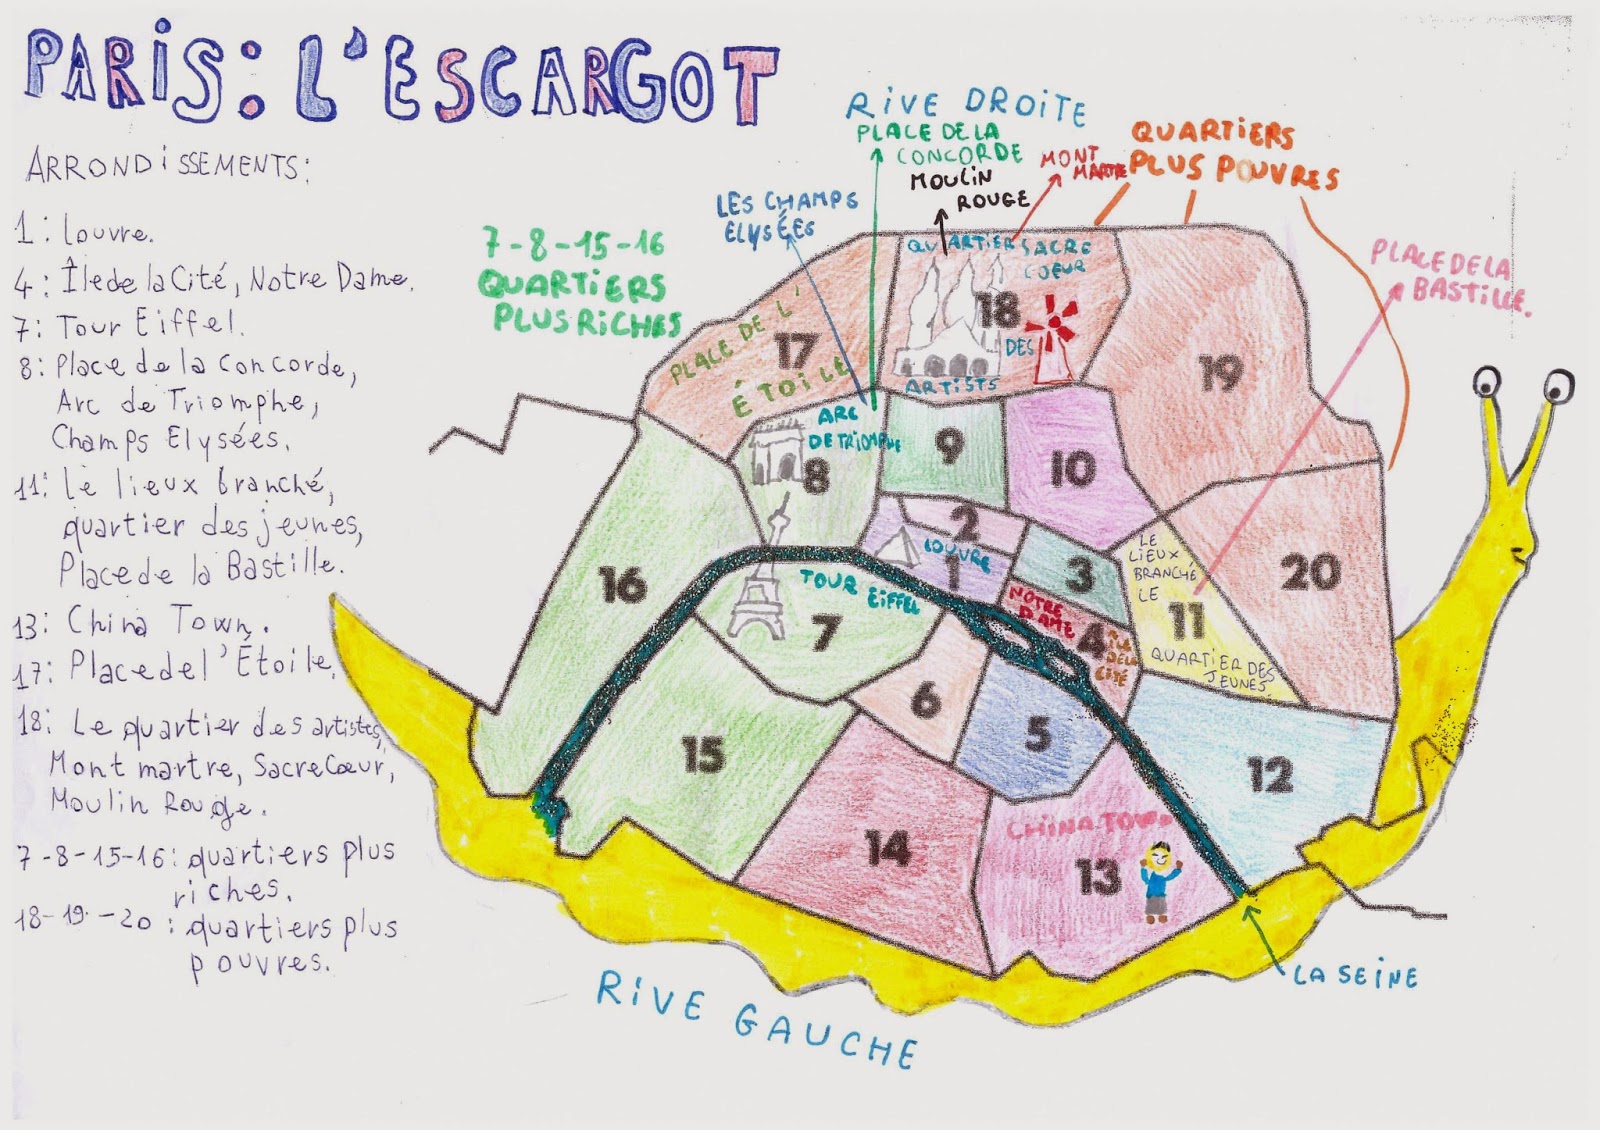 PARIS: L'ESCARGOT
ARRONDISSEMENTS:
1: Louvre.
4: Île de la Cité, Notre Dame.
7: Tour Eiffel.
8: Place de la Concorde,
Arc de Triomphe,
Champs Elysées.
11: Le lieux branché,
quartier des jeunes,
Place de la Bastille.
13: China Town.
17: Place de l'Étoile.
18: Le quartier des artistes,
Mont martre, Sacre Cœur,
Moulin Rouge.
7-8-15-16: quartiers plus
riches.
18-19-20: quartiers plus
pouvres.
7-8-15-16
QUARTIERS
PLUS RICHES
RIVE DROITE
PLACE DE LA
CONCORDE
MOULIN
ROUGE
MONT
MARTRE
LES CHAMPS
ELYSÉES
QUARTIERS
PLUS POUVRES
PLACE DE LA
BASTILLE.
PLACE DE L'
ÉTOILE
17
QUARTIER
SACRE
COEUR
18
DES
ARTISTS
19
ARC
DE TRIOMPHE
8
9
10
2
LOUVRE
1
3
NOTRE
DAME
4
ILE
DE LA
CITÉ
LE
LIEUX
BRANCHÉ
LE
11
QUARTIER DES
JEUNES
20
16
TOUR EIFFEL
7
6
5
15
14
CHINA TOWN
13
12
LA SEINE
RIVE GAUCHE